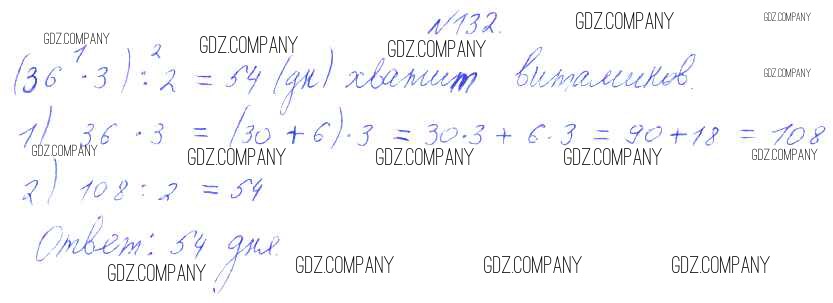 №132.
(36 · 3) : 2 = 54 (дн) хватит витаминов.
1) 36 · 3 = (30 + 6) · 3 = 30·3 + 6·3 = 90 + 18 = 108
2) 108 : 2 = 54
Ответ: 54 дня.
GDZ.COMPANY GDZ.COMPANY GDZ.COMPANY GDZ.COMPANY GDZ.COMPANY
GDZ.COMPANY
GDZ.COMPANY GDZ.COMPANY GDZ.COMPANY GDZ.COMPANY GDZ.COMPANY
GDZ.COMPANY GDZ.COMPANY GDZ.COMPANY GDZ.COMPANY